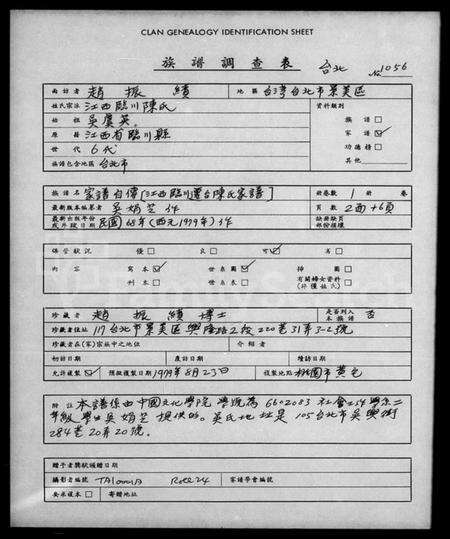 CLAN GENEALOGY IDENTIFICATION SHEET
族譜調查表 台北 No 1056
面訪者 趙振績 地區 台灣台北市景美區
姓氏宗派 江西臨川陳氏 資料類別
始祖 吳廣英 族譜 □
原籍 江西省臨川縣 家譜 ☑
世代 6代 功德榜 □
族譜包含地區 台北市 其他
族譜名 家譜自傳[江西臨川遷台陳氏家譜] 冊卷數 1 冊 卷
最新版本編纂者 吳娟芝 作 頁數 2面+6頁
最新出版年份或升段日期 民國68年(西元1979年)作 缺冊缺頁部份模樣
保管狀況 優 □ 良 □ 可 ☑ 劣 □
內容 寫本 ☑ 世系圖 ☑ 掃圖 □
刊本 □ 世系表 □ 有關婦女資料(非僅姓氏) □
珍藏者 趙振績博士 是否列入本族譜 否
珍藏者住址 117台北市景美區興隆路2段220巷31弄3-2號
珍藏者在(家)宗族中之地位 介紹者
初訪日期 複訪日期 續訪日期
允許複製 ☑ 預擬複製日期 1979年8月23日 複製地點 桃園市黃宅
附註 本譜係由中國文化學院學號為6602083社會工作學系二
年級學生吳娟芝提供的。吳氏地址是105台北市吳興街
284巷20弄20號.
贈予者獎狀頒贈日期
攝影者編號 TAIWAN Roll 24 家譜學會編號
要求複本 □ 寄贈地址